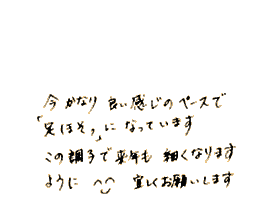 今かなり良い感じのペースで
「足ほそっ」になっています
この調子で来年も細くなります
ように ^^ 宜しくお願いします